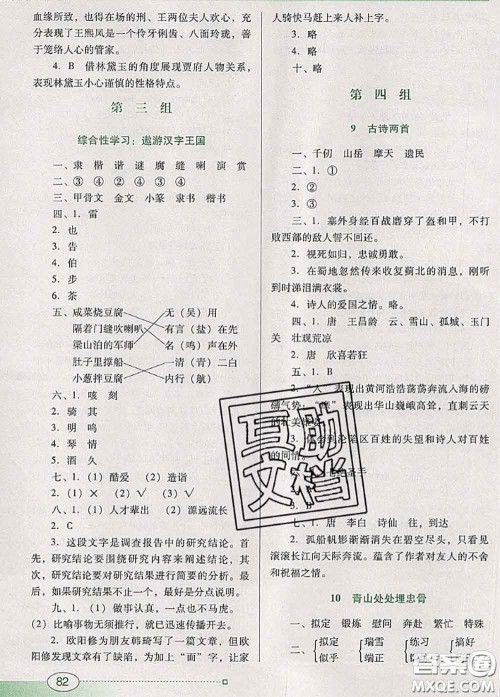 血缘所致，也得在场的邢、王两位夫人欢心，充
分表现了王熙凤是一个伶牙俐齿、八面玲珑，善
于笼络人心的管家。
4. B 借林黛玉的角度展现贾府人物关系，
表现林黛玉小心谨慎的性格特点。
第 三 组
综合性学习：遨游汉字王国
一、隶 楷 谐 谜 腐 缝 喇 演 赏
二、③ ④ ③ ④ ③ ④
三、甲骨文 金文 小篆 隶书 楷书
四、1. 雷
2. 也
3. 告
4. 伯
5. 角
6. 茶
五、咸菜烧豆腐 无（吴）用
隔着门缝吹喇叭 有言（盐）在先
梁山泊的军师 名（鸣）声在外
肚子里撑船 一清（青）二白
小葱拌豆腐 内行（航）
六、1. 咳 刻
2. 骑 其
3. 明 鸣
4. 琴 情
5. 酒 久
七、1.（1）酷爱 （2）造诣
2.（1）× （2）× （3）× （4）√
八、1.（1）人才辈出 （2）源远流长
2. C
3. 这段文字是调查报告中的研究结论。首
先，研究结论要围绕研究内容来阐述结论，其
次，研究结论要对研究结果进行简要的分析。最
后，如果研究结果不是很科学，要分析原因。
九、1.（1）做事认真，一点也不马虎。
（2）比喻事物无须推行，就已迅速地传播开去。
2. 欧阳修为朋友韩琦写了一篇文章，但欧
阳修发现文章有缺陷，为加上“而”字，让家
82
人骑快马赶上来补上字。
3. 略
十、略
第 四 组
9 古诗两首
一、千仞 山岳 摩天 遗民
二、1. ①
2. ①
三、1. 塞外身经百战磨穿了盔和甲，不打
败西部的敌人誓不回还。
2. 视死如归，忠诚勇敢。
3. 在蜀地忽然传来收复蓟北的消息，刚听到
时涕泪满衣裳。
4. 诗人的爱国之情。略。
四、1. 唐 王昌龄 云，雪山，孤城，玉门
关 壮观荒凉
2. 唐 欣喜若狂
五、1. B
2. “入”表现出黄河浩浩荡荡奔流入海的磅
礴气势；“摩”表现出华山巍峨高耸，直刺云天
的壮美
3. 百姓的失望和诗人对百姓
的同情。
七、1. 唐 李白 诗仙 往，到达
2. 孤船帆影渐渐消失在碧空尽头，只看见
滚滚长江向天际奔流。蕴含了作者对友人的不舍
和祝福之情。
10 青山处处埋忠骨
一、拟定 锻炼 慰问 奔赴 繁忙 特殊
二、拟定 瑞雪 练习 搞好
似乎
互助文档
答案圈
MXQE.COM